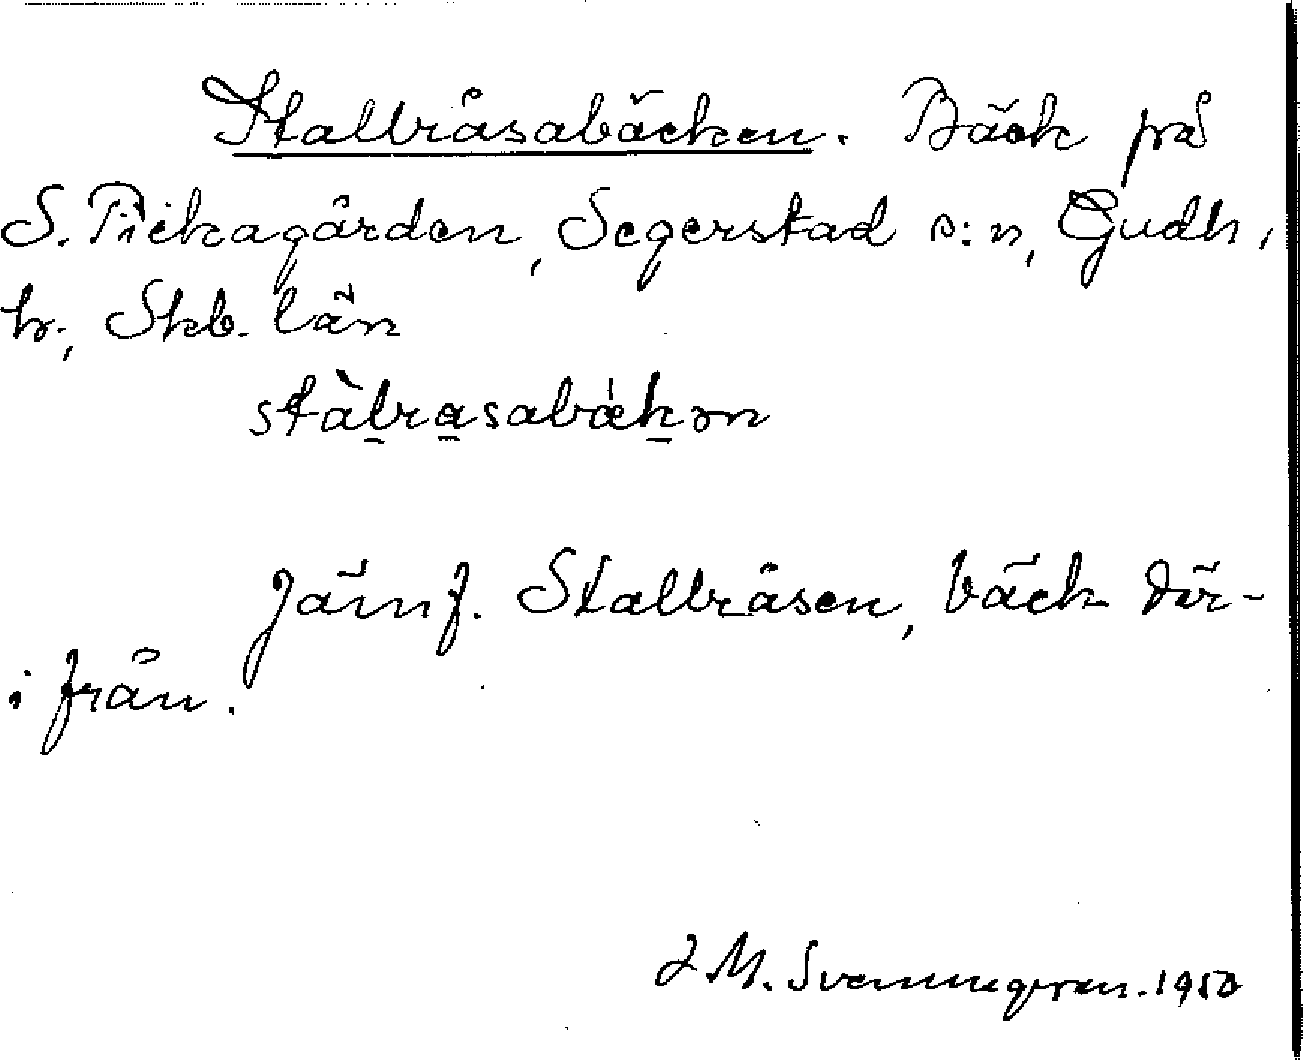 Stallråsabäcken. Bäck på
S. Pickagården, Segerstad s:n, Gudh.
hr, Skb. län
stàlrasabákən
Jämf. Stallråsen, bäck där-
ifrån.
J M. Svennungsson. 1950